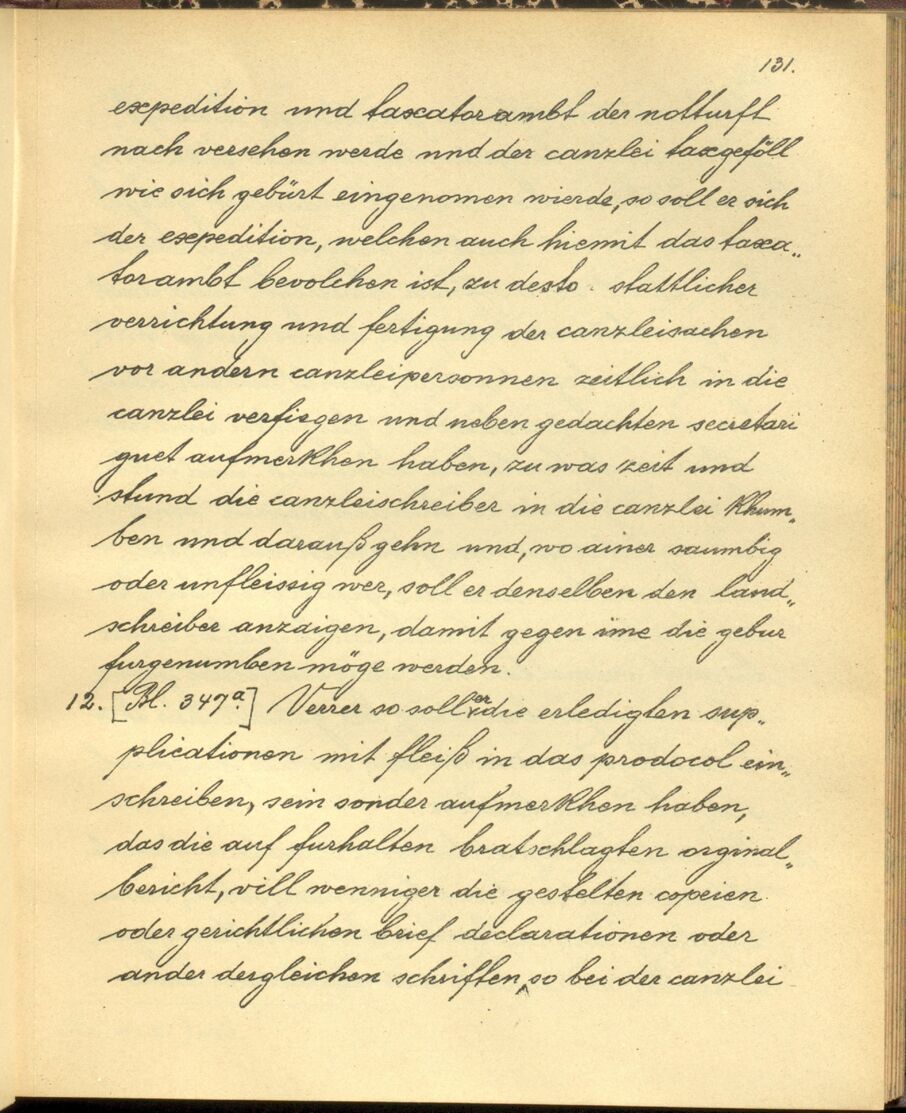 131.
expedition und taxatorambt der notturft
nach versehen werde und der canzlei taxgeföll
wie sich gebürt eingenomen wierde, so soll er sich
der expedition, welchen auch hiemit das taxa„
torambt bevolchen ist, zu desto stattlicher
verrichtung und fertigung der canzleisachen
vor andern canzleipersonnen zeitlich in die
canzlei verfiegen und neben gedachten secretari
guet aufmerkhen haben, zu was zeit und
stund die canzleischreiber in die canzlei khum„
ben und darauß gehn und, wo ainer saumbig
oder unfleissig wer, soll er denselben den land„
schreiber anzaigen, damit gegen ime die gebur
furgenumben möge werden.
12. [Bl. 347a.] Verrer so soll er die erledigten sup„
plicationen mit fleiß in das prodocol ein„
schreiben, sein sonder aufmerkhen haben,
das die auf furhalten bratschlagten orginal„
bericht, vill wenniger die gestelten copeien
oder gerichtlichen brief declarationen oder
ander dergleichen schriften, so bei der canzlei